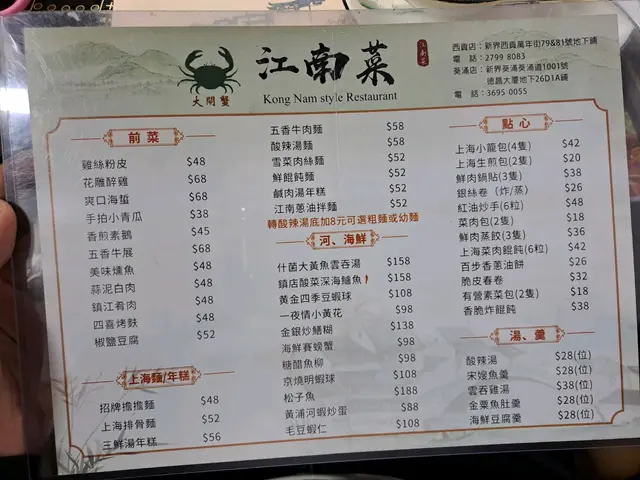 江南菜
江南菜
大閘蟹
Kong Nam style Restaurant
西貢店：新界西貢萬年街79&81號地下舖
電 話：2799 8083
葵涌店：新界葵涌葵涌道1001號
德昌大廈地下26D1A舖
電 話：3695 0055
前菜
雞絲粉皮 $48
花雕醉雞 $68
爽口海蜇 $68
手拍小青瓜 $38
香煎素鵝 $45
五香牛展 $68
美味燻魚 $48
蒜泥白肉 $48
鎮江肴肉 $48
四喜烤麩 $48
椒鹽豆腐 $52
上海麵/年糕
招牌擔擔麵 $48
上海排骨麵 $52
三鮮湯年糕 $56
五香牛肉麵 $58
酸辣湯麵 $58
雪菜肉絲麵 $52
鮮餛飩麵 $52
鹹肉湯年糕 $52
江南蔥油拌麵 $52
轉酸辣湯底加8元可選粗麵或幼麵
河、海鮮
什菌大黃魚雲吞湯 $158
鎮店酸菜深海鱸魚 $158
黃金四季豆蝦球 $108
一夜情小黃花 $98
金銀炒鱔糊 $138
海鮮賽螃蟹 $98
糖醋魚柳 $98
京燒明蝦球 $108
松子魚 $188
黃浦河蝦炒蛋 $88
毛豆蝦仁 $108
點心
上海小籠包(4隻) $42
上海生煎包(2隻) $20
鮮肉鍋貼(3隻) $38
銀絲卷（炸/蒸） $26
紅油炒手(6粒) $48
菜肉包(2隻) $18
鮮肉蒸餃(3隻) $36
上海菜肉餛飩(6粒) $42
百步香蔥油餅 $26
脆皮春卷 $32
有營素菜包(2隻) $18
香脆炸餛飩 $38
湯、羹
酸辣湯 $28(位)
宋嫂魚羹 $28(位)
雲吞雞湯 $38(位)
金粟魚肚羹 $28(位)
海鮮豆腐羹 $28(位)